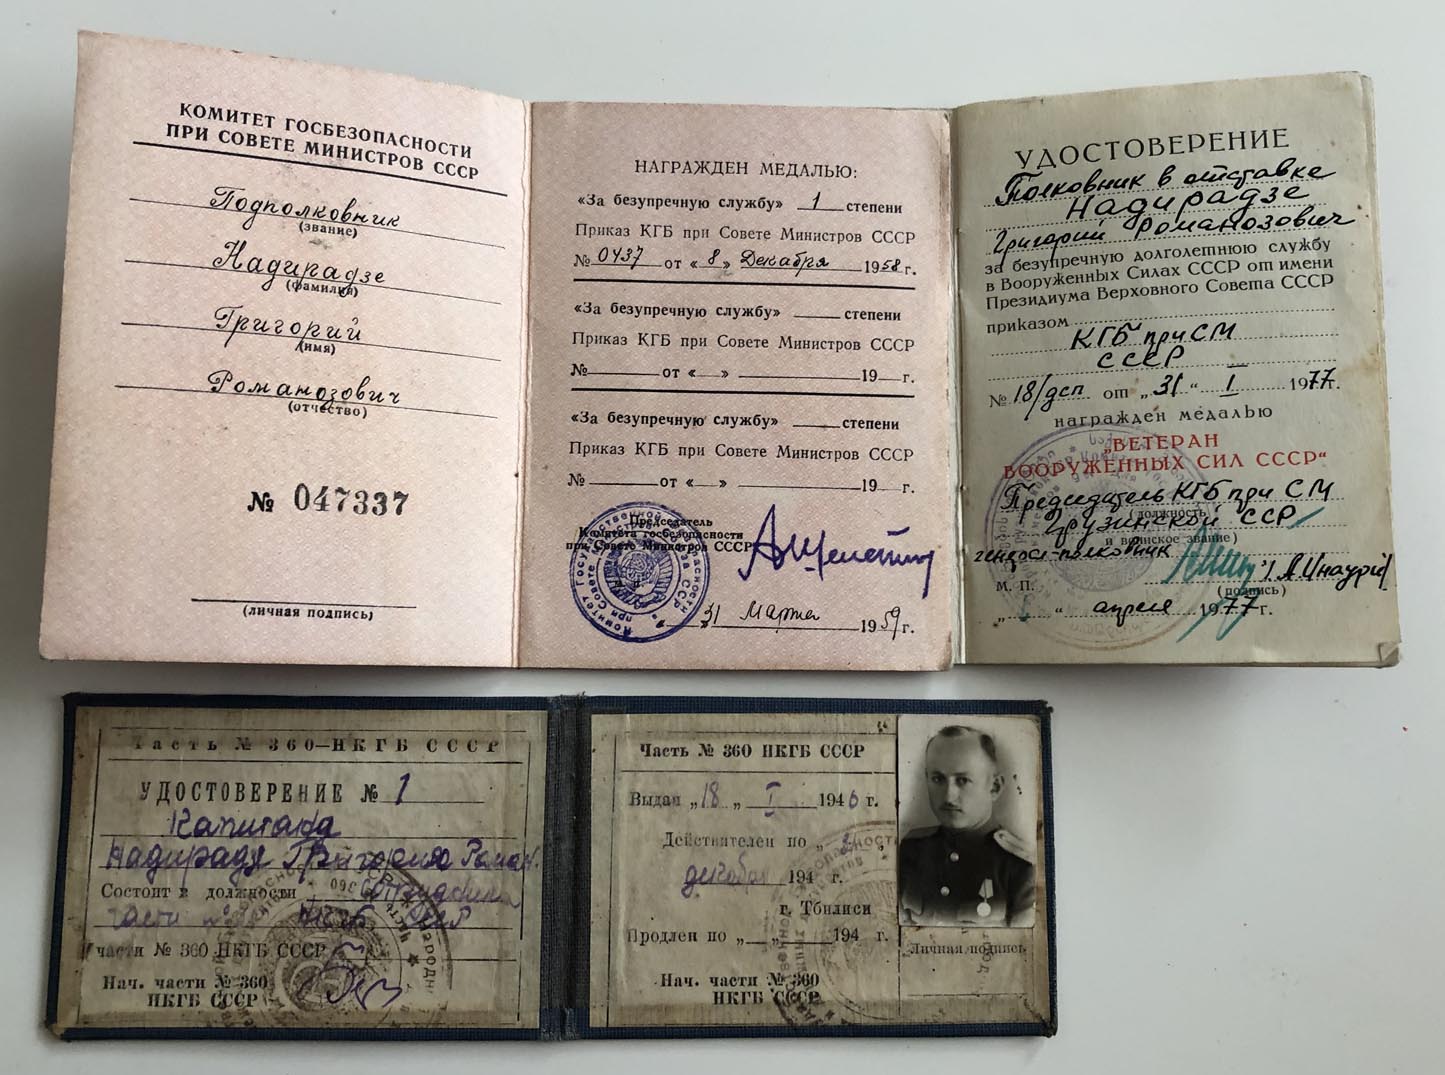 КОМИТЕТ ГОСБЕЗОПАСНОСТИ
ПРИ СОВЕТЕ МИНИСТРОВ СССР
Подполковник
(звание)
Надирадзе
(фамилия)
Григорий
(имя)
Романозович
(отчество)
№ 047337
(личная подпись)
НАГРАЖДЕН МЕДАЛЬЮ:
«За безупречную службу» 1 степени
Приказ КГБ при Совете Министров СССР
№ 0437 от «8» Декабря 1958 г.
«За безупречную службу» степени
Приказ КГБ при Совете Министров СССР
№ от « » 19 г.
«За безупречную службу» степени
Приказ КГБ при Совете Министров СССР
№ от « » 19 г.
Председатель
Комитета госбезопасности
при Совете Министров СССР
31 Марта 1959 г.
УДОСТОВЕРЕНИЕ
Полковник в отставке
Надирадзе
Григорий Романозович
за безупречную долголетнюю службу
в Вооруженных Силах СССР от имени
Президиума Верховного Совета СССР
приказом
КГБ при СМ
СССР
№ 18/дсп от „31“ I 1977 г.
награжден медалью
„ВЕТЕРАН
ВООРУЖЕННЫХ СИЛ СССР“
Председатель КГБ при СМ
(должность
Грузинской ССР
и воинское звание)
генерал-полковник
А. Инаури
М. П. (подпись)
“ апреля 1977 г.
Часть № 360—НКГБ СССР
УДОСТОВЕРЕНИЕ № 1
Капитана
Надирадзе Григория Роман.
Состоит в должности
части № НКГБ СССР
части № 360 НКГБ СССР
Нач. части № 360
НКГБ СССР
Часть № 360 НКГБ СССР
Выдан „18„ I 1946 г.
Действителен по „31„
декабря 194 г.
г. Тбилиси
Продлен по „ „ 194 г.
Личная подпись
Нач. части № 360
НКГБ СССР